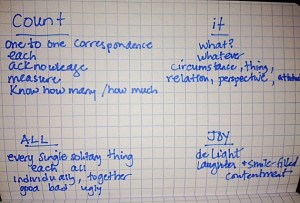 Count
one to one correspondence
each
acknowledge
measure
Know how many / how much
it
what?
whatever
circumstance, thing,
relation, perspective,
ALL
every single solitary thing
each all
individually, together
good bad ugly
JOY
delight
laughter + smile-filled
contentment